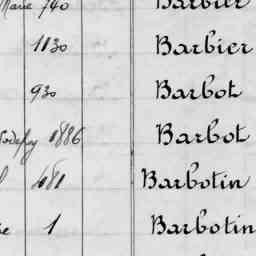 Marie 740 Barbier
1130 Barbier
930 Barbot
1886 Barbot
481 Barbotin
1 Barbotin